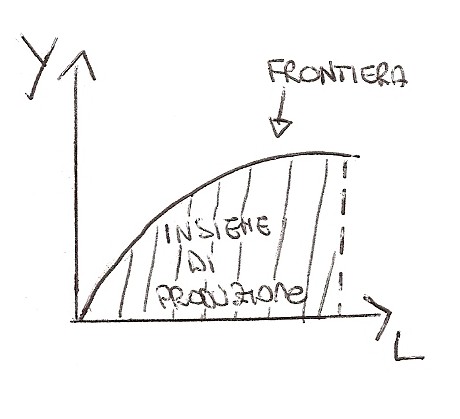 Y
FRONTIERA
INSIEME
DI
PRODUZIONE
L